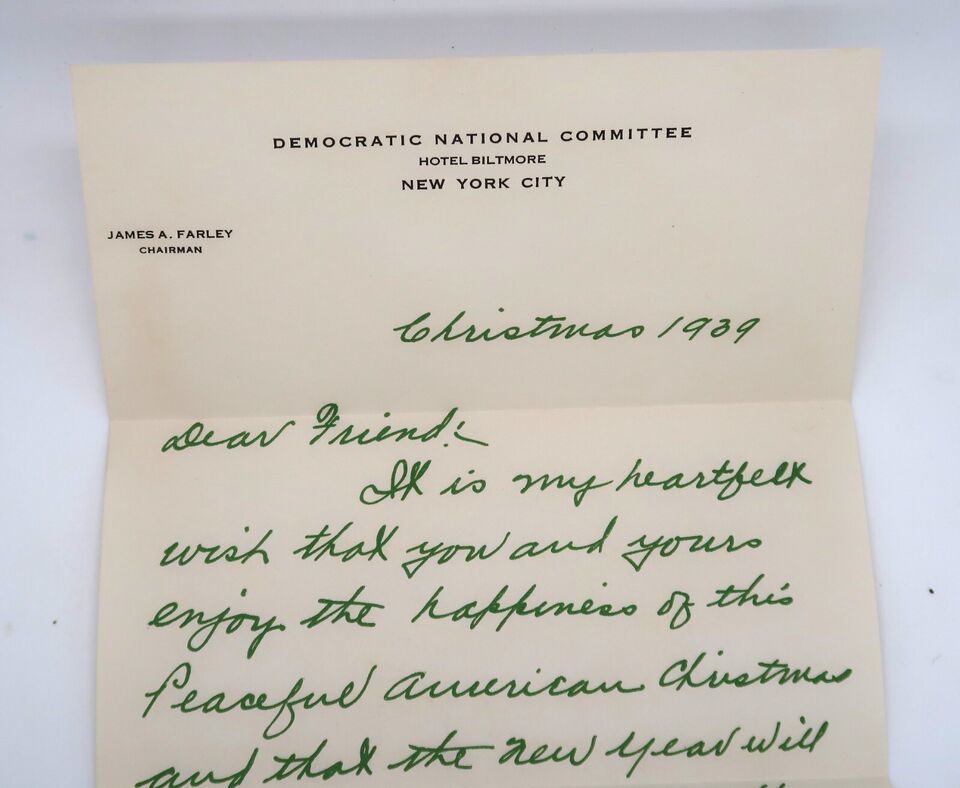 DEMOCRATIC NATIONAL COMMITTEE
HOTEL BILTMORE
NEW YORK CITY
JAMES A. FARLEY
CHAIRMAN
Christmas 1939
Dear Friend:
It is my heartfelt
wish that you and yours
enjoy the happiness of this
Peaceful American Christmas
and that the New Year will